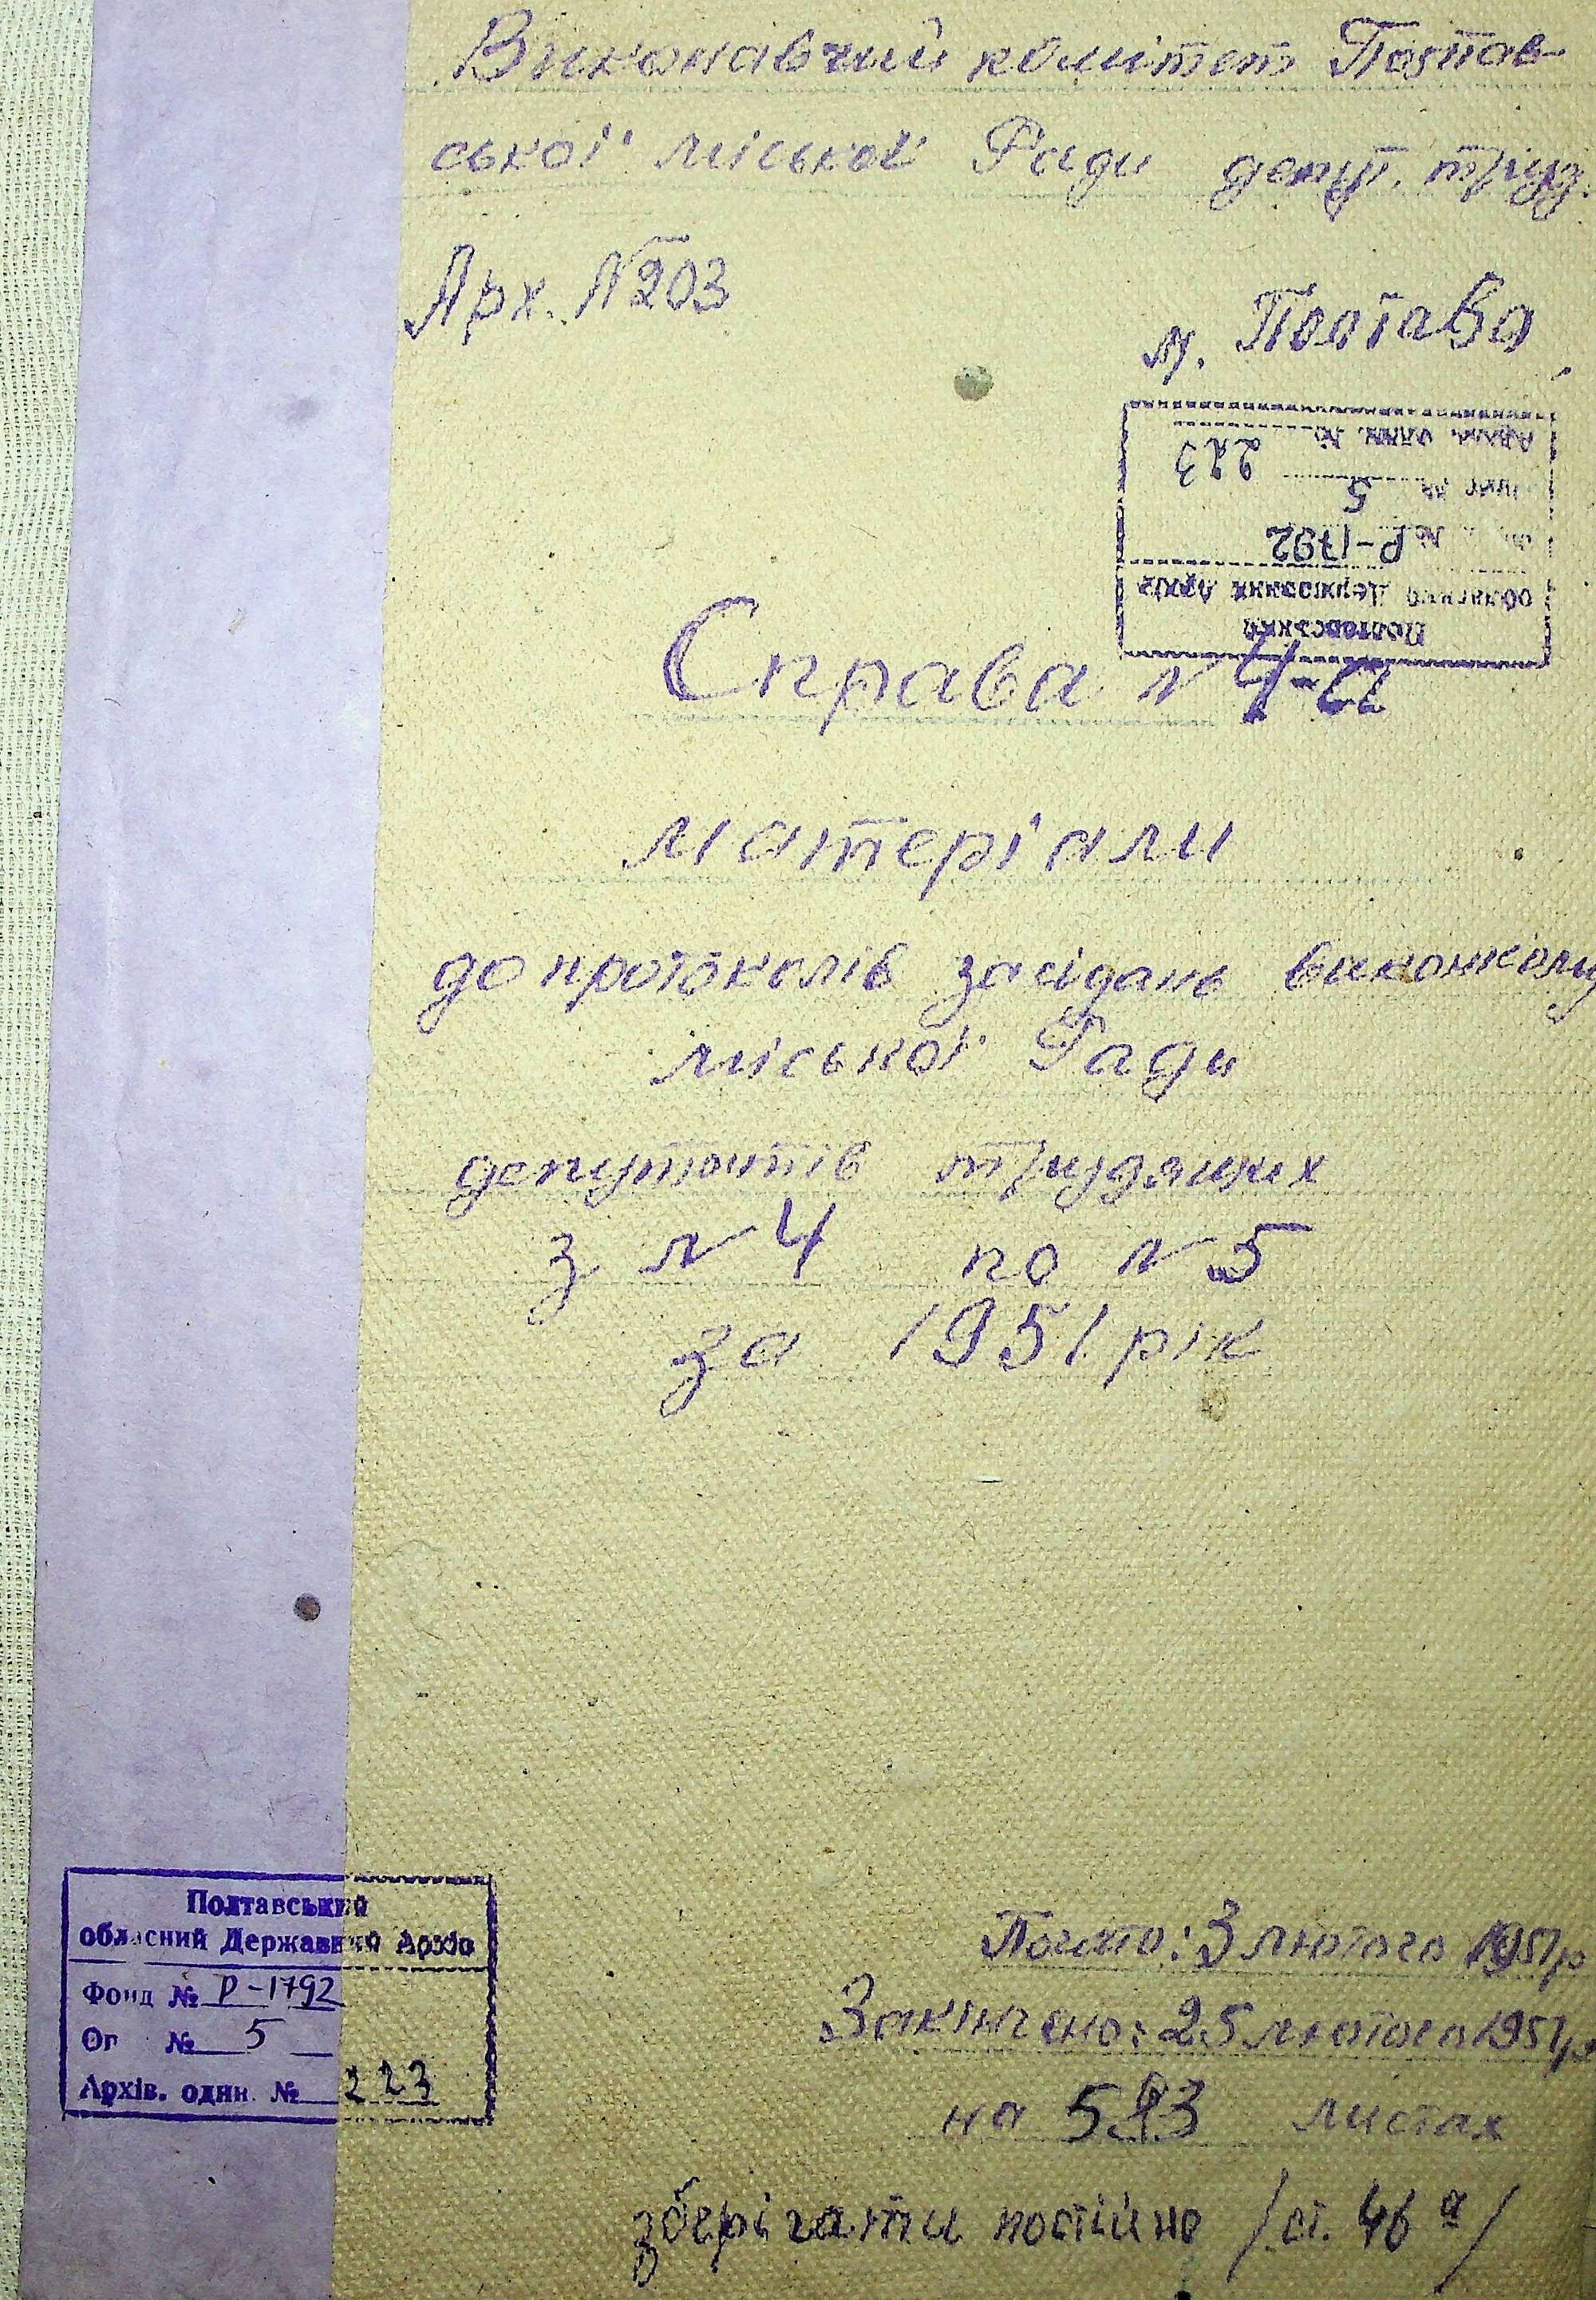 Виконавчий комітет Полтав-
ської міської Ради депут. труд.
Арх. N 203
м. Полтава
Полтавський
обласний Державний Архів
№ Р-1792
№ 5
Архів. один. № 223
Справа N 4-а
матеріали
до протоколів засідань виконкому
міської Ради
депутатів трудящих
з N 4 по N 5
за 1951 рік
Полтавський
обласний Державний Архів
Фонд № Р-1792
Оп № 5
Архів. один. № 223
Почато: 3 лютого 1951р
Закінчено: 25 лютого 1951р
на листах
зберігати постійно /ст. 46 а/